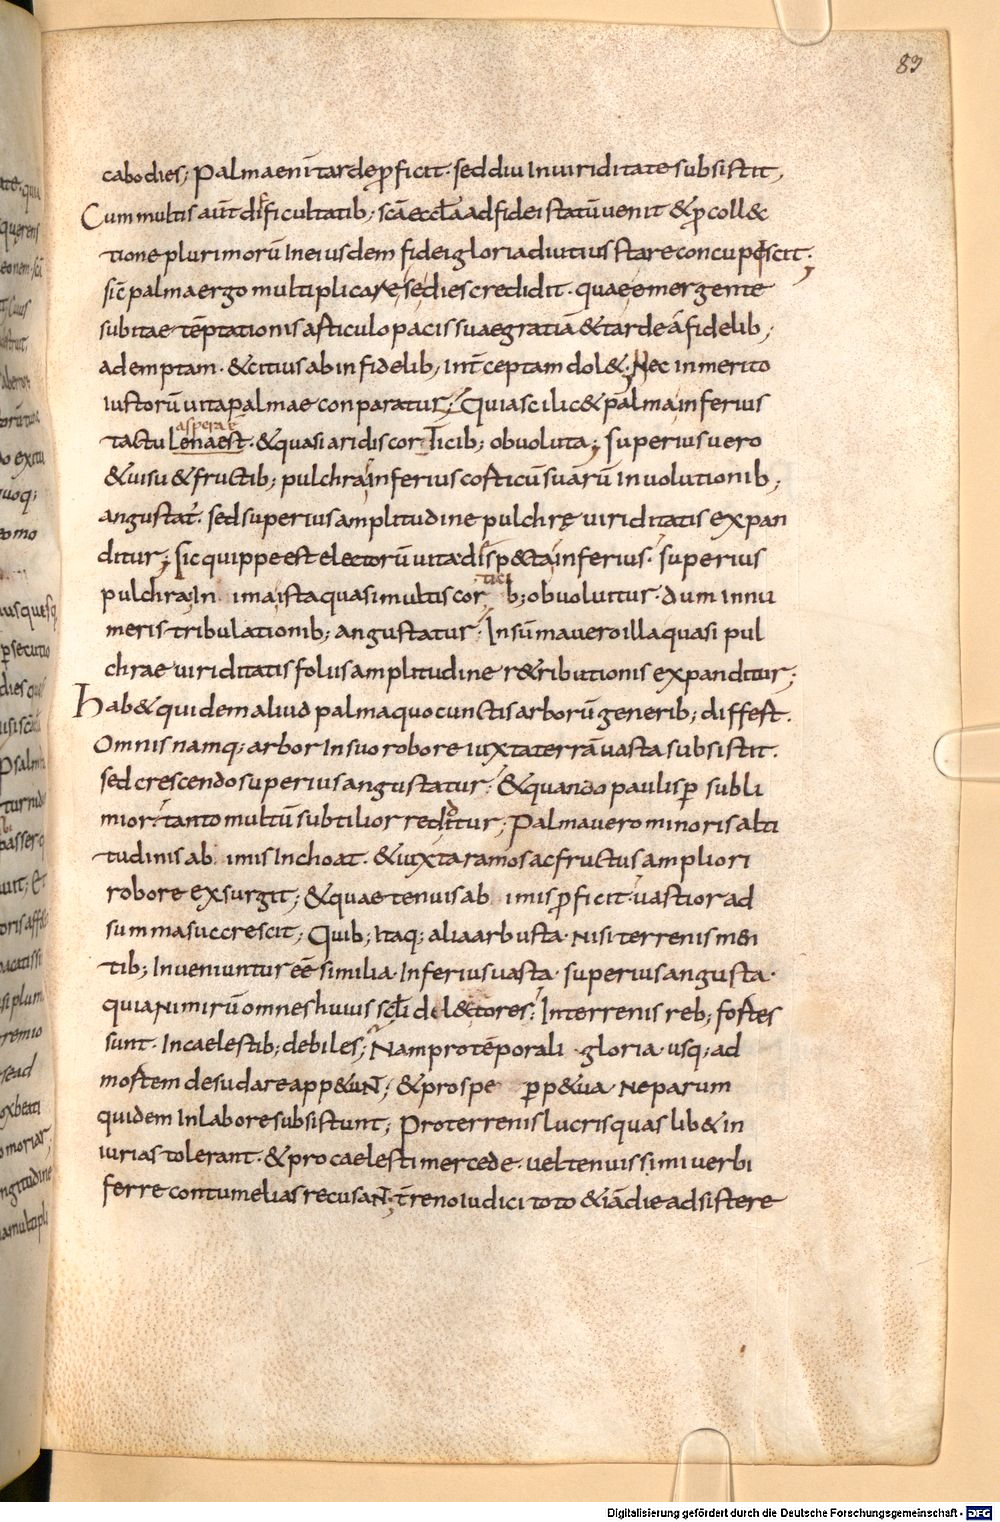 83
cabo dies; Palma enī tarde ꝓficit · sed diu In uiriditate subsistit,
Cum multis aūt difficultatib; scā eccl̄a ad fidei statū uenit & ꝓ coll&
tione plurimorū In eiusdem fidei gloria diutius stare concupiscit;
sic̄ palma ergo multiplicare se dies credidit · quae emergente
subitae tēptationis articulo pacis suae gratiā & tarde a fidelib;
ademptam · & citius ab infidelib; Int̄ceptam dol& · Nec inmerito
iustorū uita palmae conparatur; Quia scilic& palma inferius
aspera ē
tactu lena est · & quasi aridis corticib; obuoluta; superius uero
& uisu & fructib; pulchra inferius corticū suarū Inuolutionib;
angustat̄ · sed superius amplitudine pulchrę uiriditatis expan
ditur; sic quippe est electorū uita dispecta inferius · superius
pulchra; In ima ista quasi multis corticib; obuoluitur · dum innu
meris tribulationib; angustatur; In sūma uero illa quasi pul
chrae uiriditatis folus amplitudine r&ributionis expanditur;
Hab& quidem aliud palma quo cunctis arborū generib; differt.
Omnis namq; arbor In suo robore iuxta terrā uasta subsistit.
sed crescendo superius angustatur; & quando paulisꝑ subli
mior · tanto multū subtilior redditur; Palma uero minoris alti
tudinis ab imis Inchoat · & iuxta ramos ac fructus ampliori
robore exsurgit; & quae tenuis ab imis ꝓficit · uastior ad
summa succrescit; Quib; Itaq; alia arbusta · nisi terrenis men
tib; Inueniuntur eē similia · Inferius uasta · superius angusta ·
quia nimirū omnes huius scl̄i dilectores; In terrenis reb; fortes
sunt · In caelestib; debiles; Nam pro tēporali gloria usq; ad
mortem desudare app&uNT; & pro spe perp&ua · ne parum
quidem In labore subsistunt; Pro terrenis lucris quas lib& in
iurias tolerant · & pro caelesti mercede · uel tenuissimi uerbi
ferre contumelias recusaNT; t̄reno iudici toto & iā die adsistere
Digitalisierung gefördert durch die Deutsche Forschungsgemeinschaft - DFG